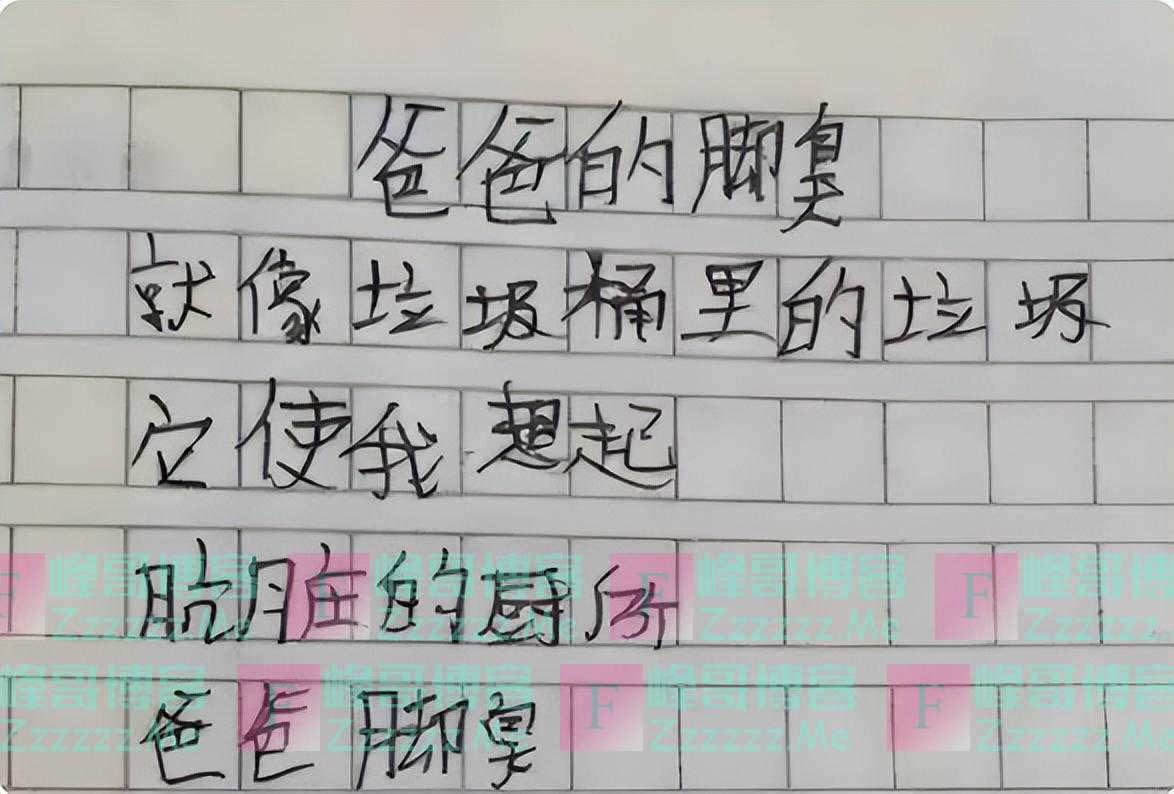 爸爸的脚臭
就像垃圾桶里的垃圾
它使我想起
肮脏的厨所
峰哥博客 F 峰哥博客 F 峰哥博客 F 峰哥博客
Zzzzzz.Me Zzzzzz.Me Zzzzzz.Me Zzzzzz.Me
爸爸脚臭
峰哥博客 F 峰哥博客 F 峰哥博客 F 峰哥博客
Zzzzzz.Me Zzzzzz.Me Zzzzzz.Me Zzzzzz.Me